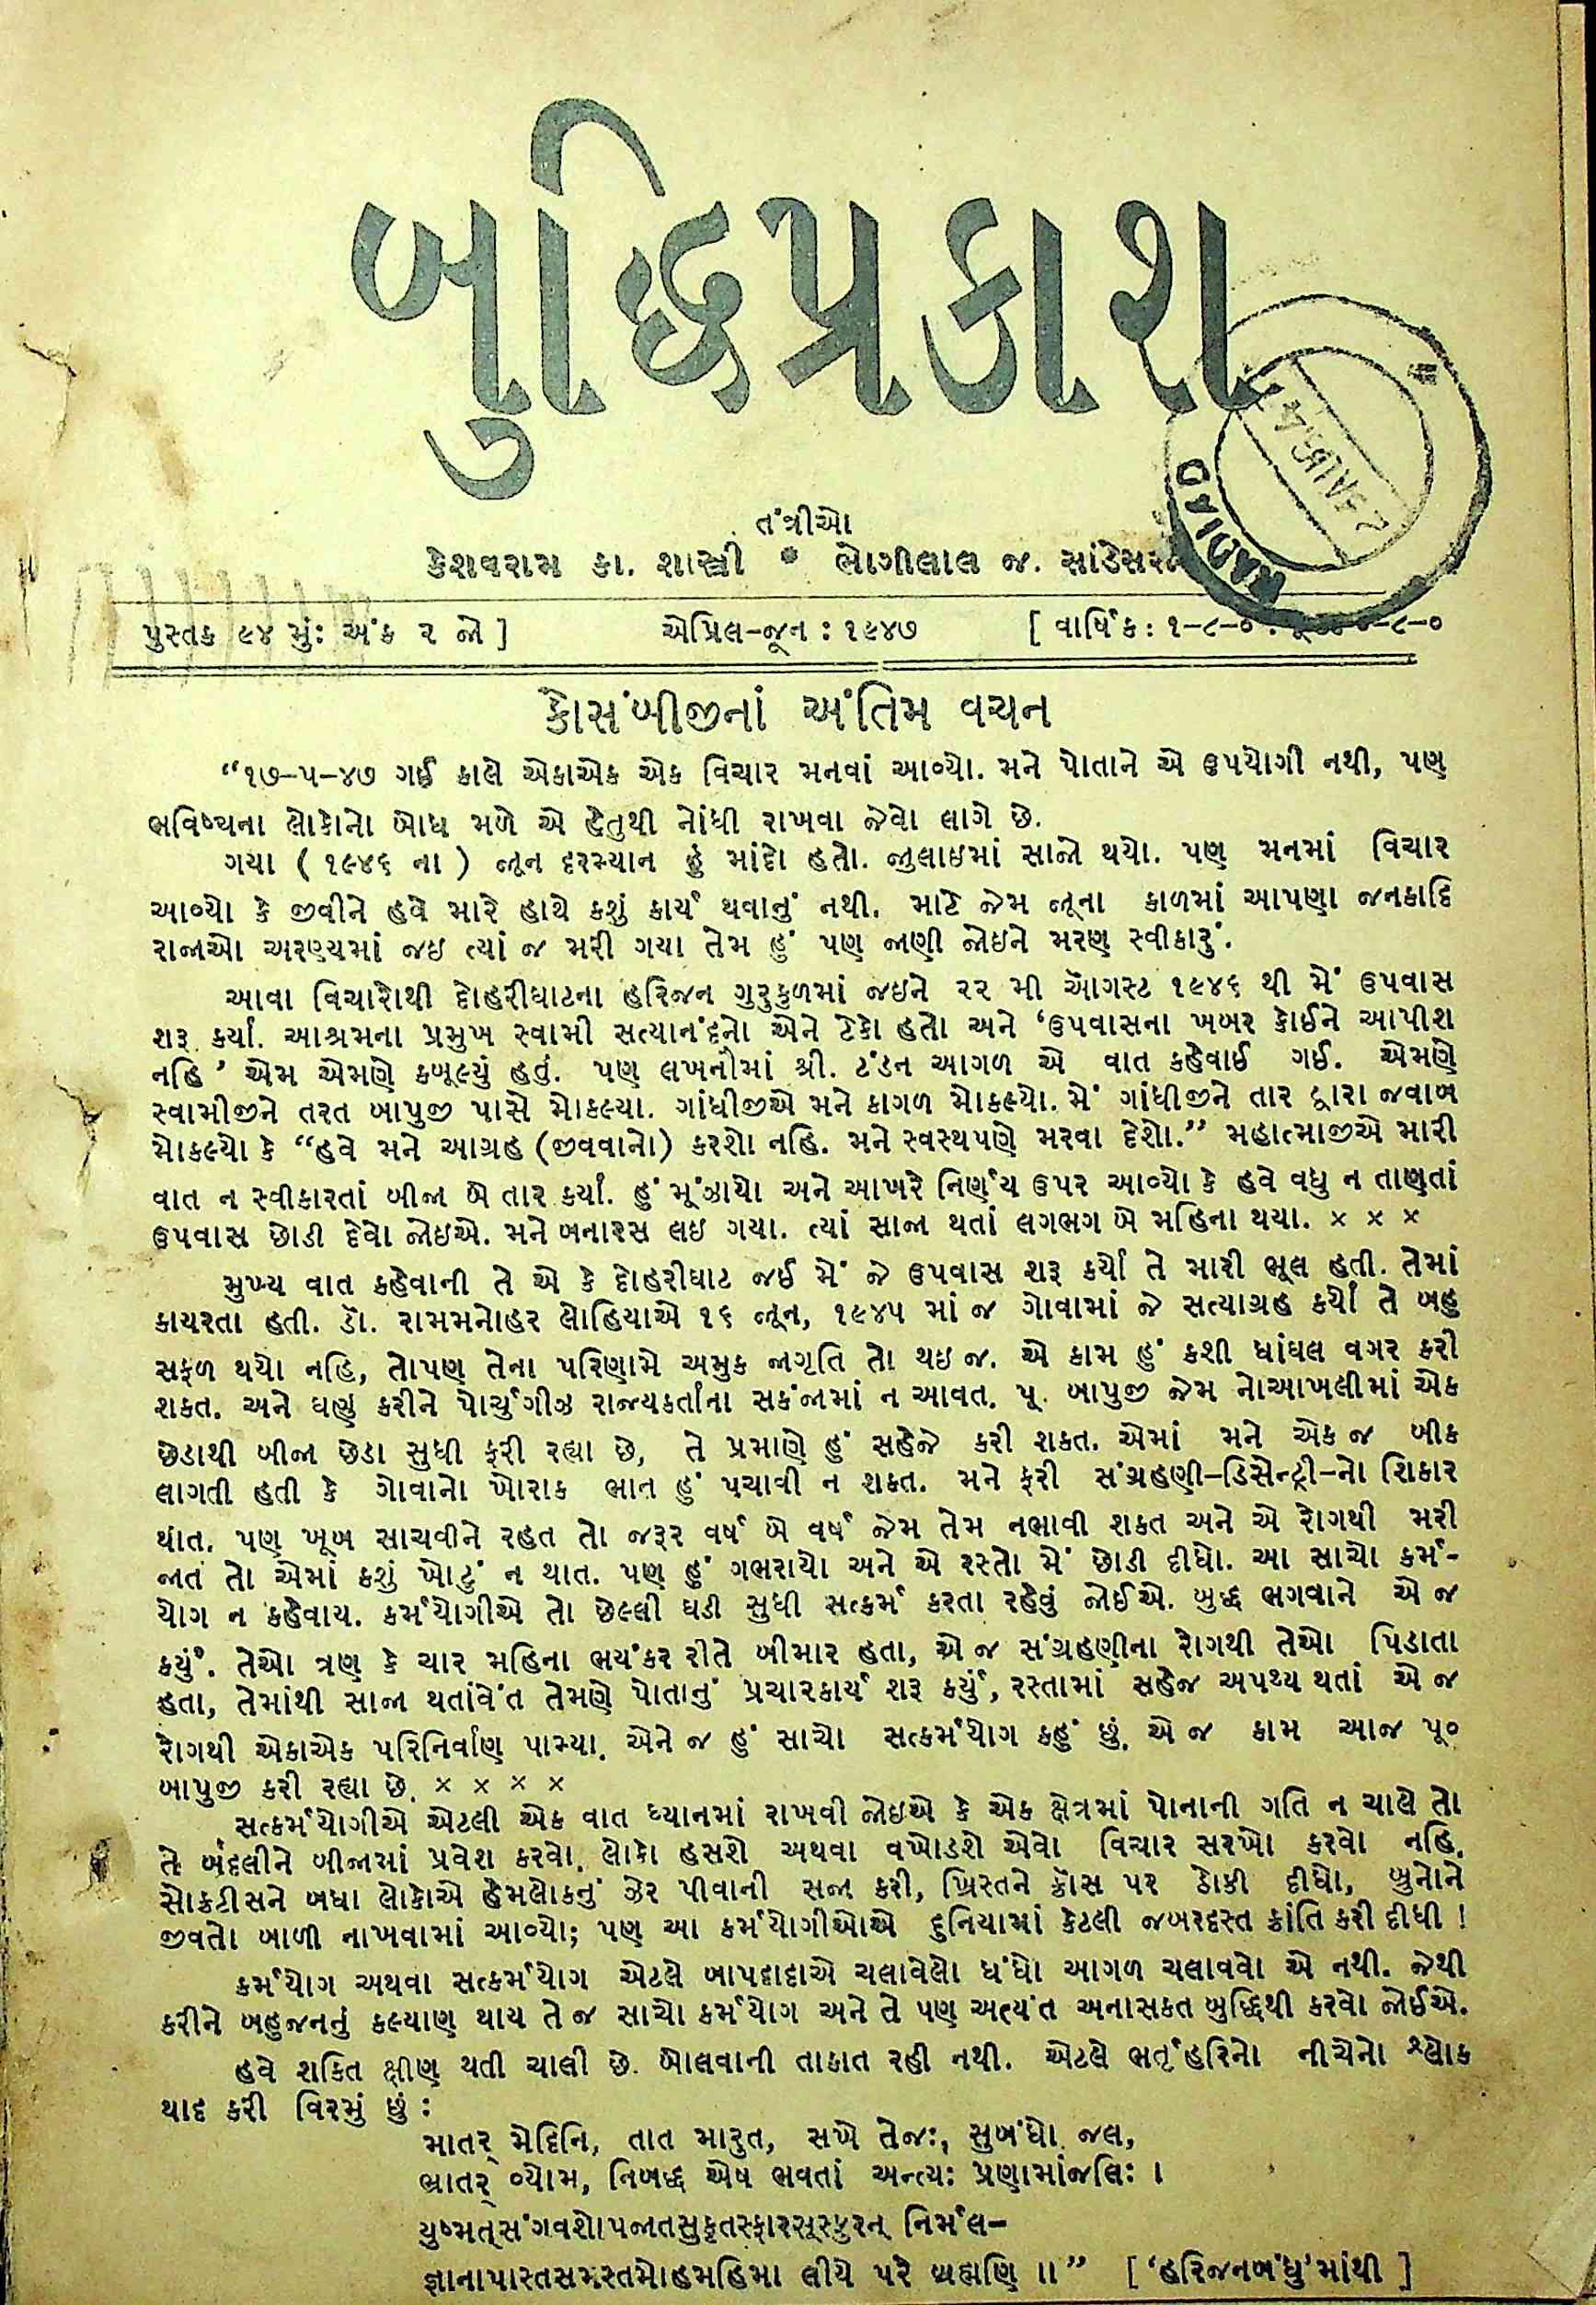 બુદ્ધિપ્રકાશ
તંત્રીઓ
કેશવરામ કા. શાસ્ત્રી * ભોગીલાલ જ. સાંડેસરા
NADIAD
પુસ્તક ૯૪ મું: અંક ૨ જો ]
એપ્રિલ-જૂન : ૧૯૪૭
[ વાર્ષિક: ૧-૮-૦ : ૦-૮-૦
કોસંબીજીનાં અંતિમ વચન
“૧૭-૫-૪૭ ગઈ કાલે એકાએક એક વિચાર મનવાં આવ્યો. મને પોતાને એ ઉપયોગી નથી, પણ
ભવિષ્યના લોકોનો બોધ મળે એ હેતુથી નોંધી રાખવા જેવો લાગે છે.
ગયા ( ૧૯૪૬ ના ) જૂન દરમ્યાન હું માંદો હતો. જુલાઇમાં સાજો થયો. પણ મનમાં વિચાર
આવ્યો કે જીવીને હવે મારે હાથે કશું કાર્ય થવાનું નથી. માટે જેમ જૂના કાળમાં આપણા જનકાદિ
રાજાઓ અરણ્યમાં જઇ ત્યાં જ મરી ગયા તેમ હું પણ જાણી જોઇને મરણ સ્વીકારું.
આવા વિચારોથી દોહરીઘાટના હરિજન ગુરુકુળમાં જઇને ૨૨ મી ઑગસ્ટ ૧૯૪૬ થી મેં ઉપવાસ
શરૂ કર્યા. આશ્રમના પ્રમુખ સ્વામી સત્યાનંદનો એને ટેકો હતો અને ‘ઉપવાસના ખબર કોઈને આપીશ
નહિ’ એમ એમણે કબૂલ્યું હતું. પણ લખનૌમાં શ્રી. ટંડન આગળ એ વાત કહેવાઈ ગઈ. એમણે
સ્વામીજીને તરત બાપુજી પાસે મોકલ્યા. ગાંધીજીએ મને કાગળ મોકલ્યો. મેં ગાંધીજીને તાર દ્વારા જવાબ
મોકલ્યો કે “હવે મને આગ્રહ (જીવવાનો) કરશો નહિ. મને સ્વસ્થપણે મરવા દેશો.” મહાત્માજીએ મારી
વાત ન સ્વીકારતાં બીજા બે તાર કર્યા. હું મૂંઝાયો અને આખરે નિર્ણય ઉપર આવ્યો કે હવે વધુ ન તાણતાં
ઉપવાસ છોડી દેવો જોઇએ. મને બનારસ લઇ ગયા. ત્યાં સાજા થતાં લગભગ બે મહિના થયા. × × ×
મુખ્ય વાત કહેવાની તે એ કે દોહરીઘાટ જઈ મેં જે ઉપવાસ શરૂ કર્યો તે મારી ભૂલ હતી. તેમાં
કાયરતા હતી. ડૉ. રામમનોહર લોહિયાએ ૧૬ જૂન, ૧૯૪૫ માં જ ગોવામાં જે સત્યાગ્રહ કર્યો તે બહુ
સફળ થયો નહિ, તોપણ તેના પરિણામે અમુક જાગૃતિ તો થઇ જ. એ કામ હું કશી ધાંધલ વગર કરી
શકત. અને ઘણું કરીને પોર્ચુગીઝ રાજ્યકર્તાના સકંજામાં ન આવત. પૂ. બાપુજી જેમ નોઆખલીમાં એક
છેડાથી બીજા છેડા સુધી ફરી રહ્યા છે, તે પ્રમાણે હું સહેજે કરી શકત. એમાં મને એક જ બીક
લાગતી હતી કે ગોવાનો ખોરાક ભાત હું પચાવી ન શકત. મને ફરી સંગ્રહણી-ડિસેન્ટ્રી-નો શિકાર
થાત. પણ ખૂબ સાચવીને રહત તો જરૂર વર્ષ બે વર્ષ જેમ તેમ નભાવી શકત અને એ રોગથી મરી
જાત તો એમાં કશું ખોટું ન થાત. પણ હું ગભરાયો અને એ રસ્તો મેં છોડી દીધો. આ સાચો કર્મ-
યોગ ન કહેવાય. કર્મયોગીએ તો છેલ્લી ઘડી સુધી સત્કર્મ કરતા રહેવું જોઈએ. બુદ્ધ ભગવાને એ જ
કર્યું. તેઓ ત્રણ કે ચાર મહિના ભયંકર રીતે બીમાર હતા, એ જ સંગ્રહણીના રોગથી તેઓ પિડાતા
હતા, તેમાંથી સાજા થતાંવેંત તેમણે પોતાનું પ્રચારકાર્ય શરૂ કર્યું, રસ્તામાં સહેજ અપથ્ય થતાં એ જ
રોગથી એકાએક પરિનિર્વાણ પામ્યા. એને જ હું સાચો સત્કર્મયોગ કહું છું. એ જ કામ આજ પૂ૦
બાપુજી કરી રહ્યા છે. × × × ×
સત્કર્મયોગીએ એટલી એક વાત ધ્યાનમાં રાખવી જોઇએ કે એક ક્ષેત્રમાં પોતાની ગતિ ન ચાલે તો
તે બદલીને બીજામાં પ્રવેશ કરવો. લોકો હસશે અથવા વખોડશે એવો વિચાર સરખો કરવો નહિ.
સોક્રટીસને બધા લોકોએ હેમલોકનું ઝેર પીવાની સજા કરી, ખ્રિસ્તને ક્રૉસ પર ઠોકી દીધો, બ્રુનોને
જીવતો બાળી નાખવામાં આવ્યો; પણ આ કર્મયોગીઓએ દુનિયામાં કેટલી જબરદસ્ત ક્રાંતિ કરી દીધી !
કર્મયોગ અથવા સત્કર્મયોગ એટલે બાપદાદાએ ચલાવેલો ધંધો આગળ ચલાવવો એ નથી. જેથી
કરીને બહુજનનું કલ્યાણ થાય તે જ સાચો કર્મયોગ અને તે પણ અત્યંત અનાસક્ત બુદ્ધિથી કરવો જોઈએ.
હવે શક્તિ ક્ષીણ થતી ચાલી છે. બોલવાની તાકાત રહી નથી. એટલે ભર્તૃહરિનો નીચેનો શ્લોક
યાદ કરી વિરમું છું :
માતર્ મેદિનિ, તાત મારુત, સખે તેજઃ, સુબંધો જલ,
ભ્રાતર્ વ્યોમ, નિબદ્ધ એષ ભવતાં અન્ત્યઃ પ્રણામાંજલિઃ ।
યુષ્મત્સંગવશોપજાતસુકૃતસ્ફારસ્ફુરન્ નિર્મલ-
જ્ઞાનાપાસ્તસમસ્તમોહમહિમા લીયે પરે બ્રહ્મણિ ॥” [ ‘હરિજનબંધુ’માંથી ]